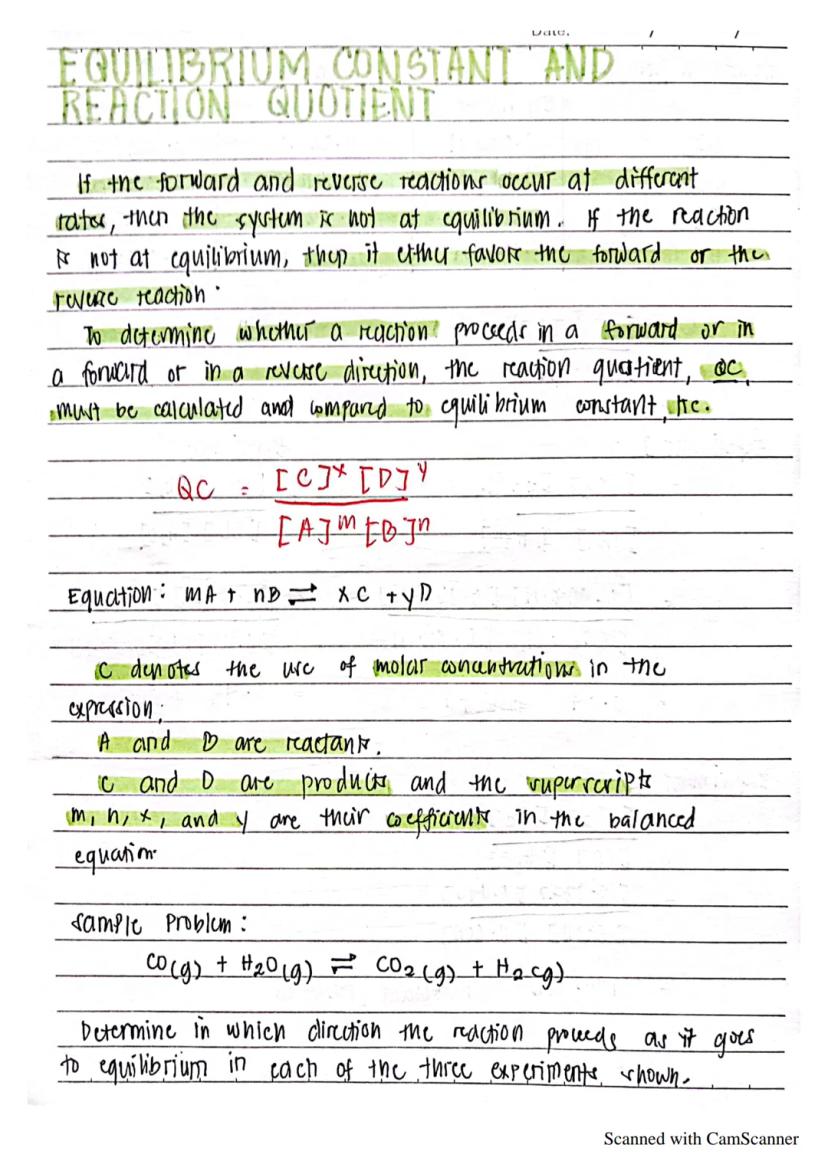 Date: / /
EQUILIBRIUM CONSTANT AND
REACTION QUOTIENT
If the forward and reverse reactions occur at different
rates, then the system is not at equilibrium. If the reaction
is not at equilibrium, then it either favors the forward or the
reverse reaction.
To determine whether a reaction proceeds in a forward or in
a forward or in a reverse direction, the reaction quotient, QC,
must be calculated and compared to equilibrium constant, Kc.
QC = [C]ˣ [D]ʸ
[A]ᵐ [B]ⁿ
Equation: mA + nB ⇌ xC + yD
C denotes the use of molar concentrations in the
expression;
A and B are reactants.
C and D are products and the superscripts
m, n, x, and y are their coefficients in the balanced
equation.
Sample Problem:
CO(g) + H2O(g) ⇌ CO2(g) + H2(g)
Determine in which direction the reaction proceeds as it goes
to equilibrium in each of the three experiments shown.
Scanned with CamScanner